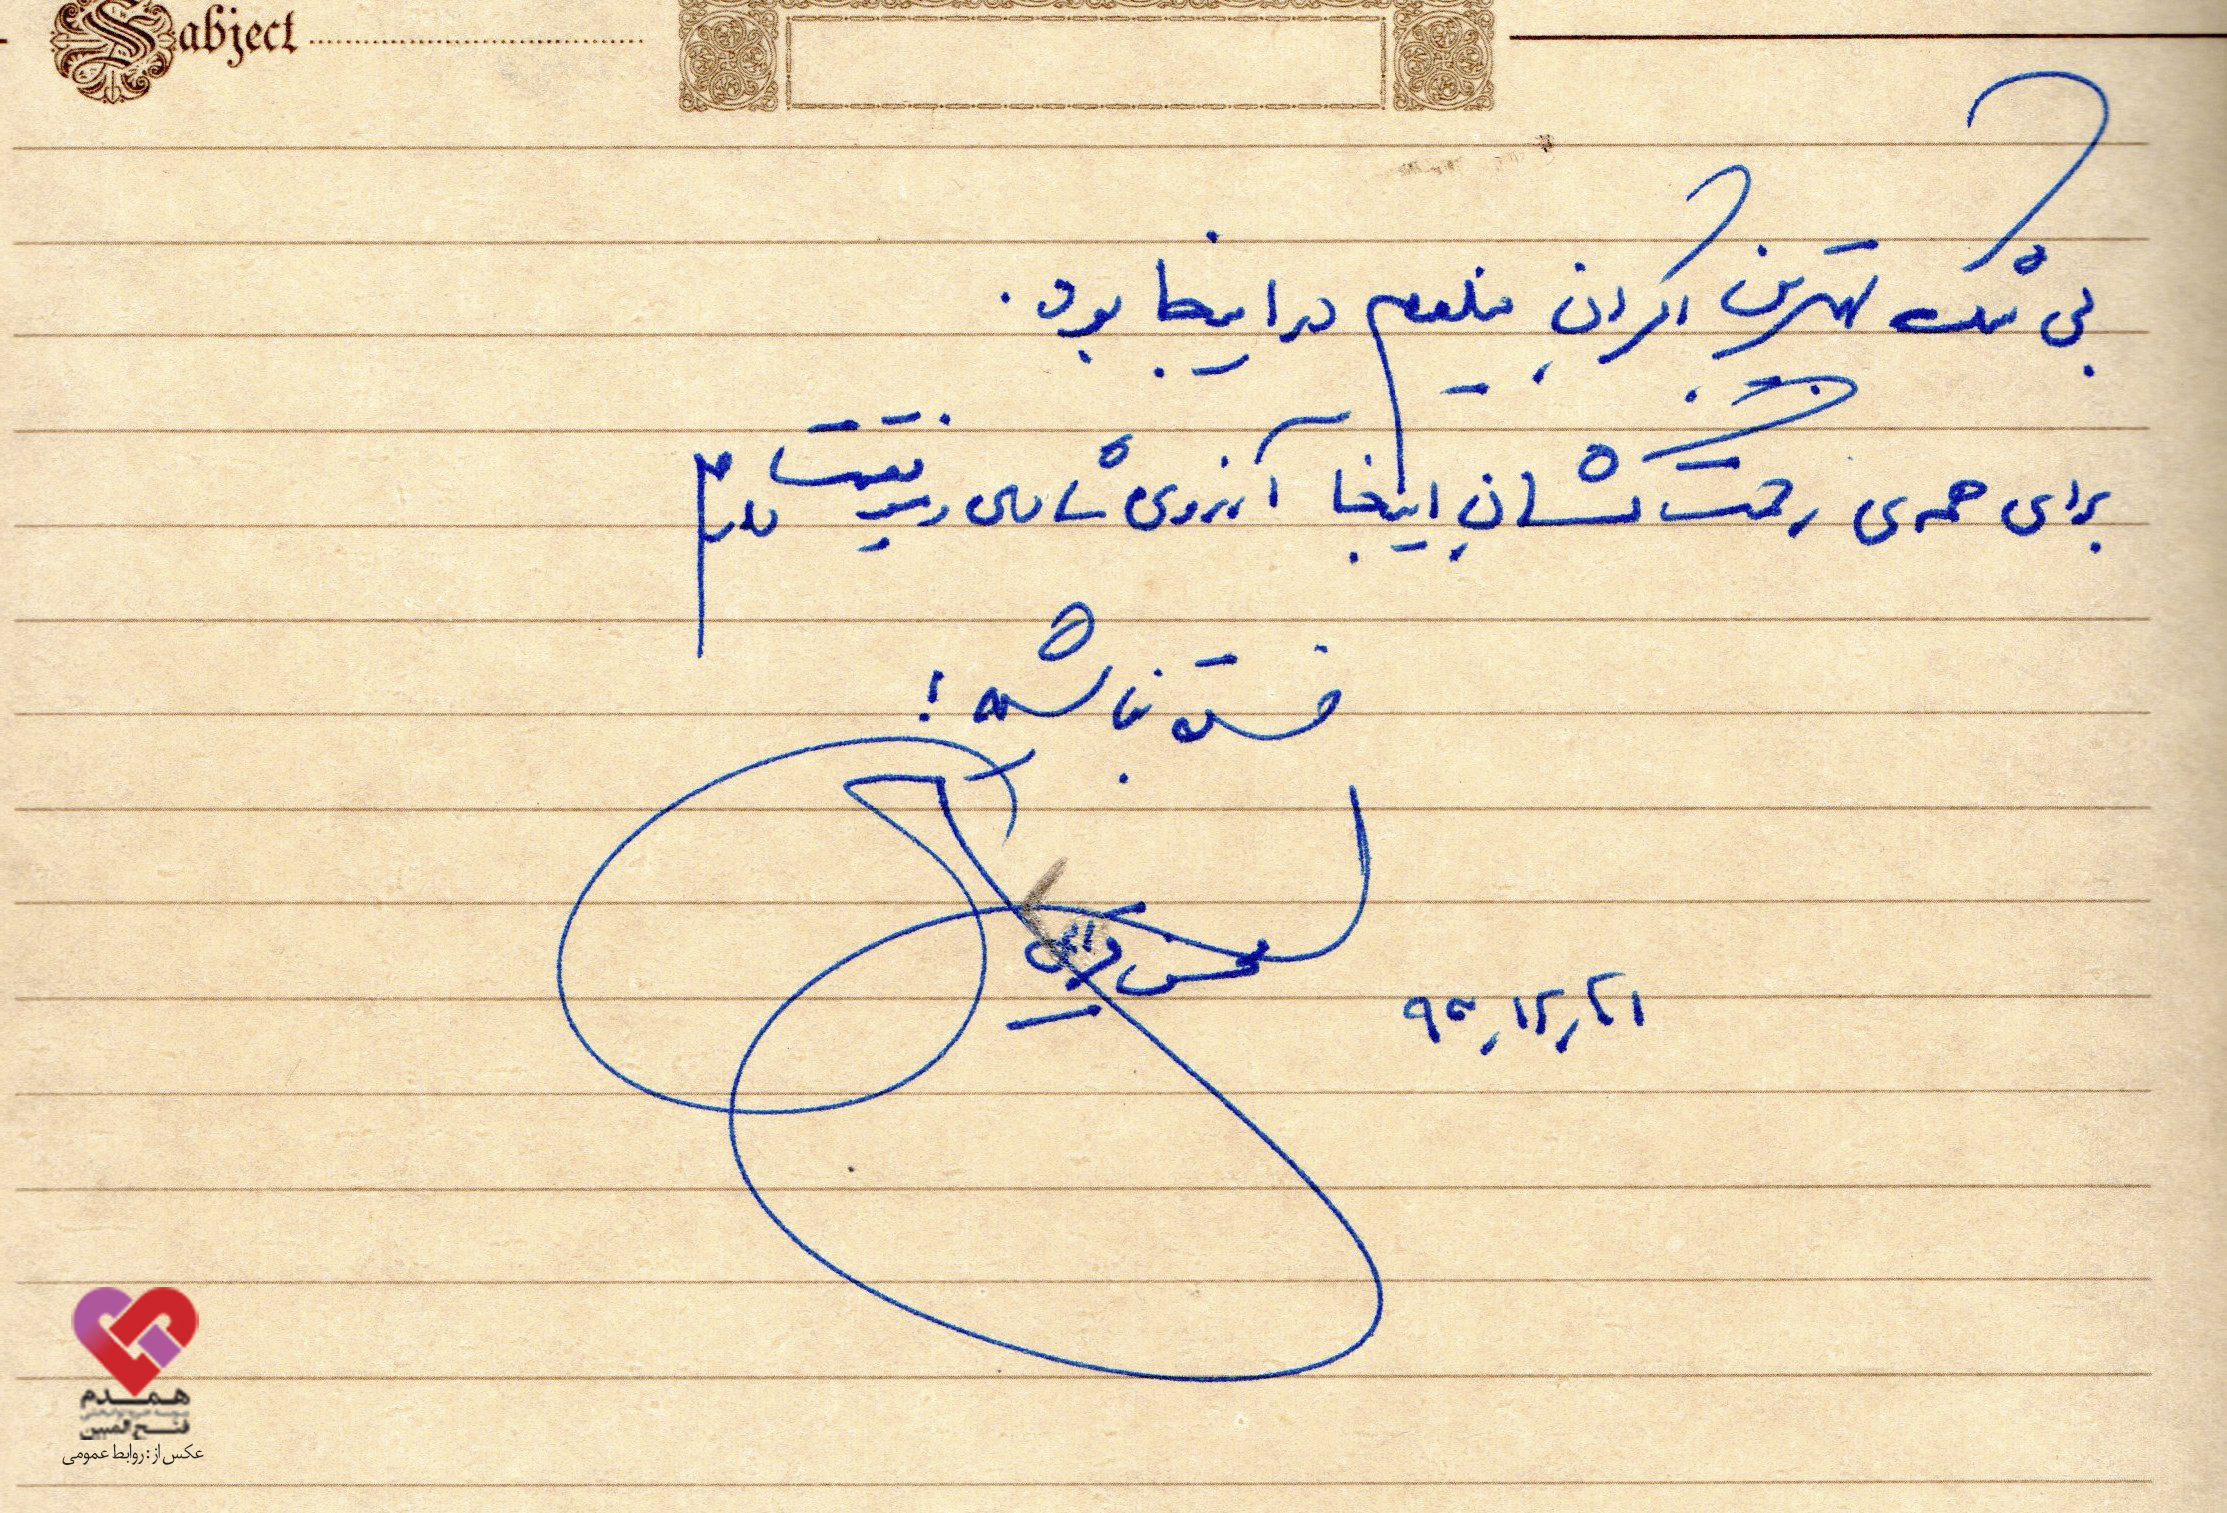 Sabject
بی شک بهترین اکران فیلمم در اینجا بود.
برای همه‌ی زحمت کشان اینجا آرزوی شادی و موفقیت دارم
خسته نباشید!
محسن
۹۳,۱۲,۲۱
همدم
فتح المبین
عکس از: روابط عمومی